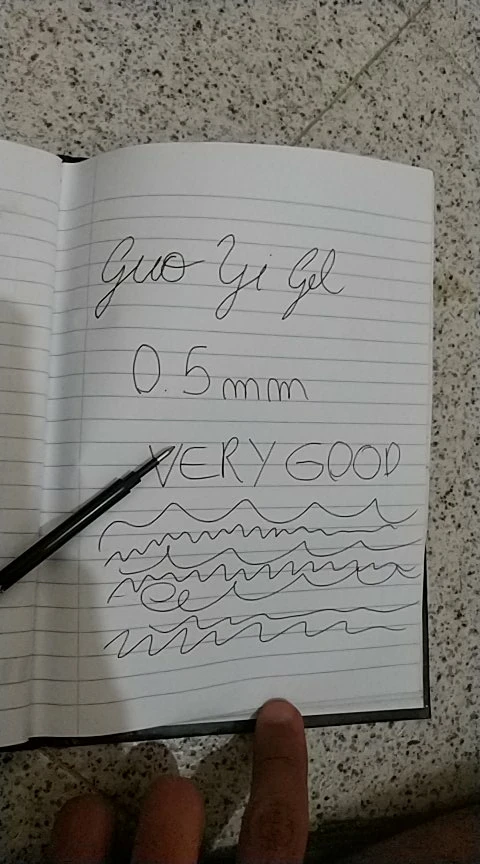 Guo Yi Gel
0.5mm
VERY GOOD